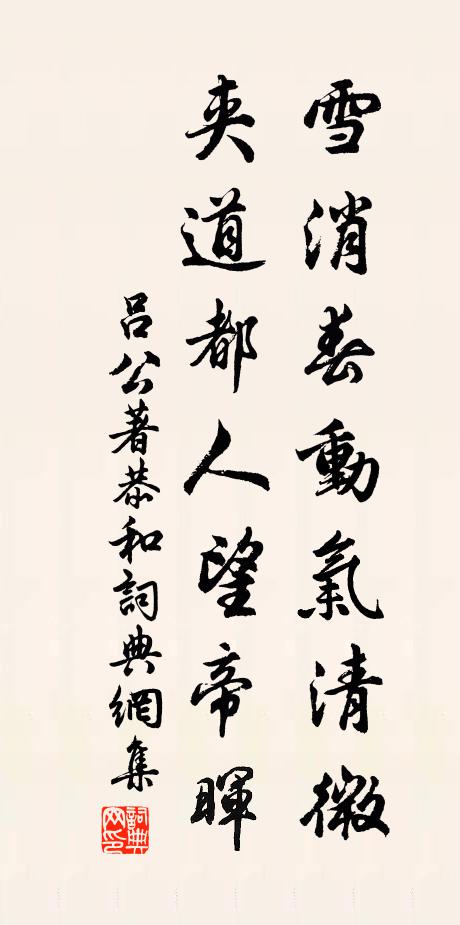 雪消春動氣清微
夾道都人望帝暉
吕公著恭和詞典網集
詞典網印